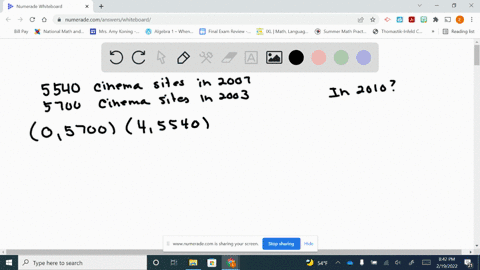 Numerade Whiteboard
numerade.com/answers/whiteboard/
Bill Pay
National Math and...
Mrs. Amy Koning -...
Algebra 1 - Whenev...
Final Exam Review -...
IXL | Math, Languag...
Summer Math Pract...
Thomastik-Infeld C...
Reading list
5540 cinema sites in 2007
5700 cinema sites in 2003
In 2010?
(0,5700) (4,5540)
www.numerade.com is sharing your screen.
Stop sharing
Hide
Type here to search
54°F
8:42 PM
2/19/2022